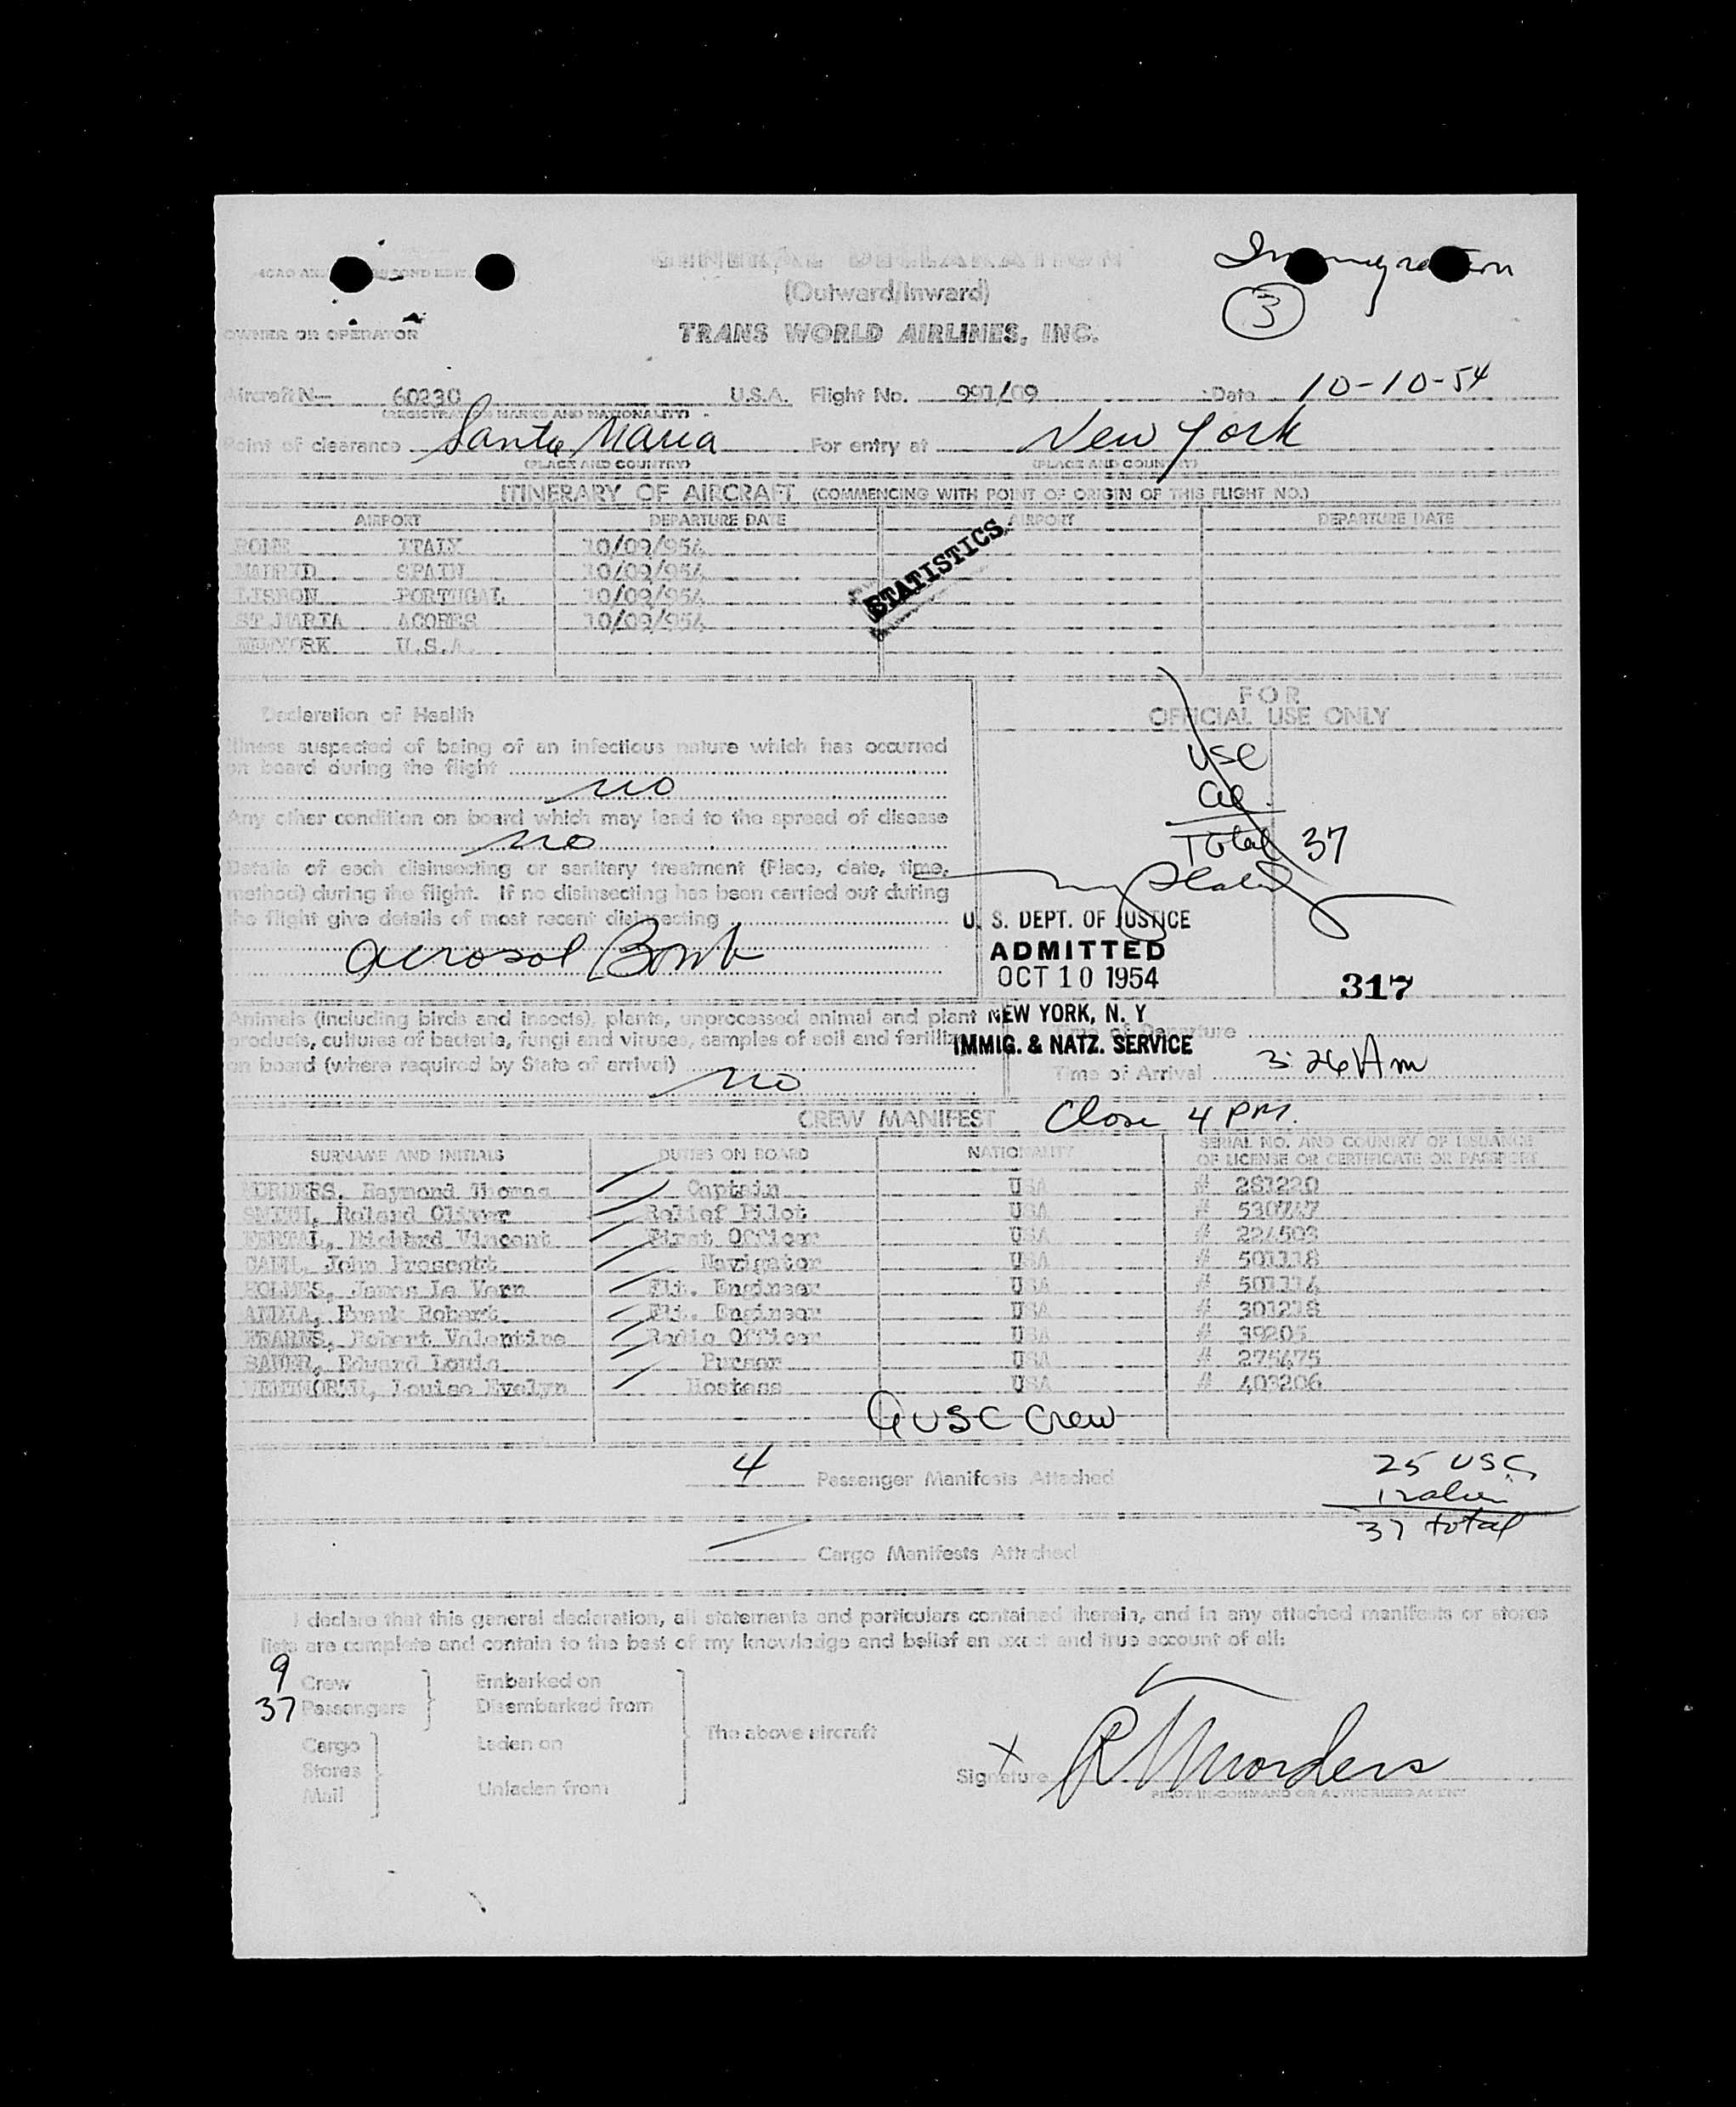 GENERAL DECLARATION
Immigration
(Outward/Inward)
3
OWNER OR OPERATOR
TRANS WORLD AIRLINES, INC.
Aircraft N- 60230 U.S.A. Flight No. 991/09 Date 10-10-54
(REGISTRATION MARKS AND NATIONALITY)
Point of clearance Santa Maria For entry at New York
(PLACE AND COUNTRY) (PLACE AND COUNTRY)
ITINERARY OF AIRCRAFT (COMMENCING WITH POINT OF ORIGIN OF THIS FLIGHT NO.)
AIRPORT DEPARTURE DATE AIRPORT DEPARTURE DATE
ROME ITALY 10/09/954
MADRID SPAIN 10/09/954
LISBON PORTUGAL 10/09/954
ST MARIA ACORES 10/09/954
NEWYORK U.S.A.
STATISTICS
FOR
OFFICIAL USE ONLY
Declaration of Health
Illness suspected of being of an infectious nature which has occurred
on board during the flight
no
Any other condition on board which may lead to the spread of disease
no
Details of each disinsecting or sanitary treatment (Place, date, time,
method) during the flight. If no disinsecting has been carried out during
the flight give details of most recent disinsecting
Aerosol Bomb
USC
Total 37
U. S. DEPT. OF JUSTICE
ADMITTED
OCT 10 1954
NEW YORK, N. Y
IMMIG. & NATZ. SERVICE
317
Animals (including birds and insects), plants, unprocessed animal and plant
products, cultures of bacteria, fungi and viruses, samples of soil and
on board (where required by State of arrival)
no
Time of Departure
Time of Arrival 3:26 Am
CREW MANIFEST Close 4 PM.
SURNAME AND INITIALS DUTIES ON BOARD NATIONALITY SERIAL NO. AND COUNTRY OF ISSUANCE
OF LICENSE OR CERTIFICATE OR PASSPORT
MORDERS, Raymond Thomas Captain USA # 281220
SMITH, Roland Oliver Relief Pilot USA # 530747
Richard Vincent First Officer USA # 224503
John Prescott Navigator USA # 501118
HOLMES, James Le Vern Flt. Engineer USA # 501114
Frank Robert Flt. Engineer USA # 301218
Robert Valentine Radio Officer USA # 39205
Edward Louis Purser USA # 275475
Louise Evelyn Hostess USA # 403206
9 USC Crew
4 Passenger Manifests Attached
25 USC
12 alien
37 total
Cargo Manifests Attached
I declare that this general declaration, all statements and particulars contained therein, and in any attached manifests or stores
lists are complete and contain to the best of my knowledge and belief an exact and true account of all:
9 Crew Embarked on
37 Passengers Disembarked from
The above aircraft
Cargo Laden on
Stores
Mail Unladen from
X
Signature R T Morders
PILOT-IN-COMMAND OR AUTHORIZED AGENT